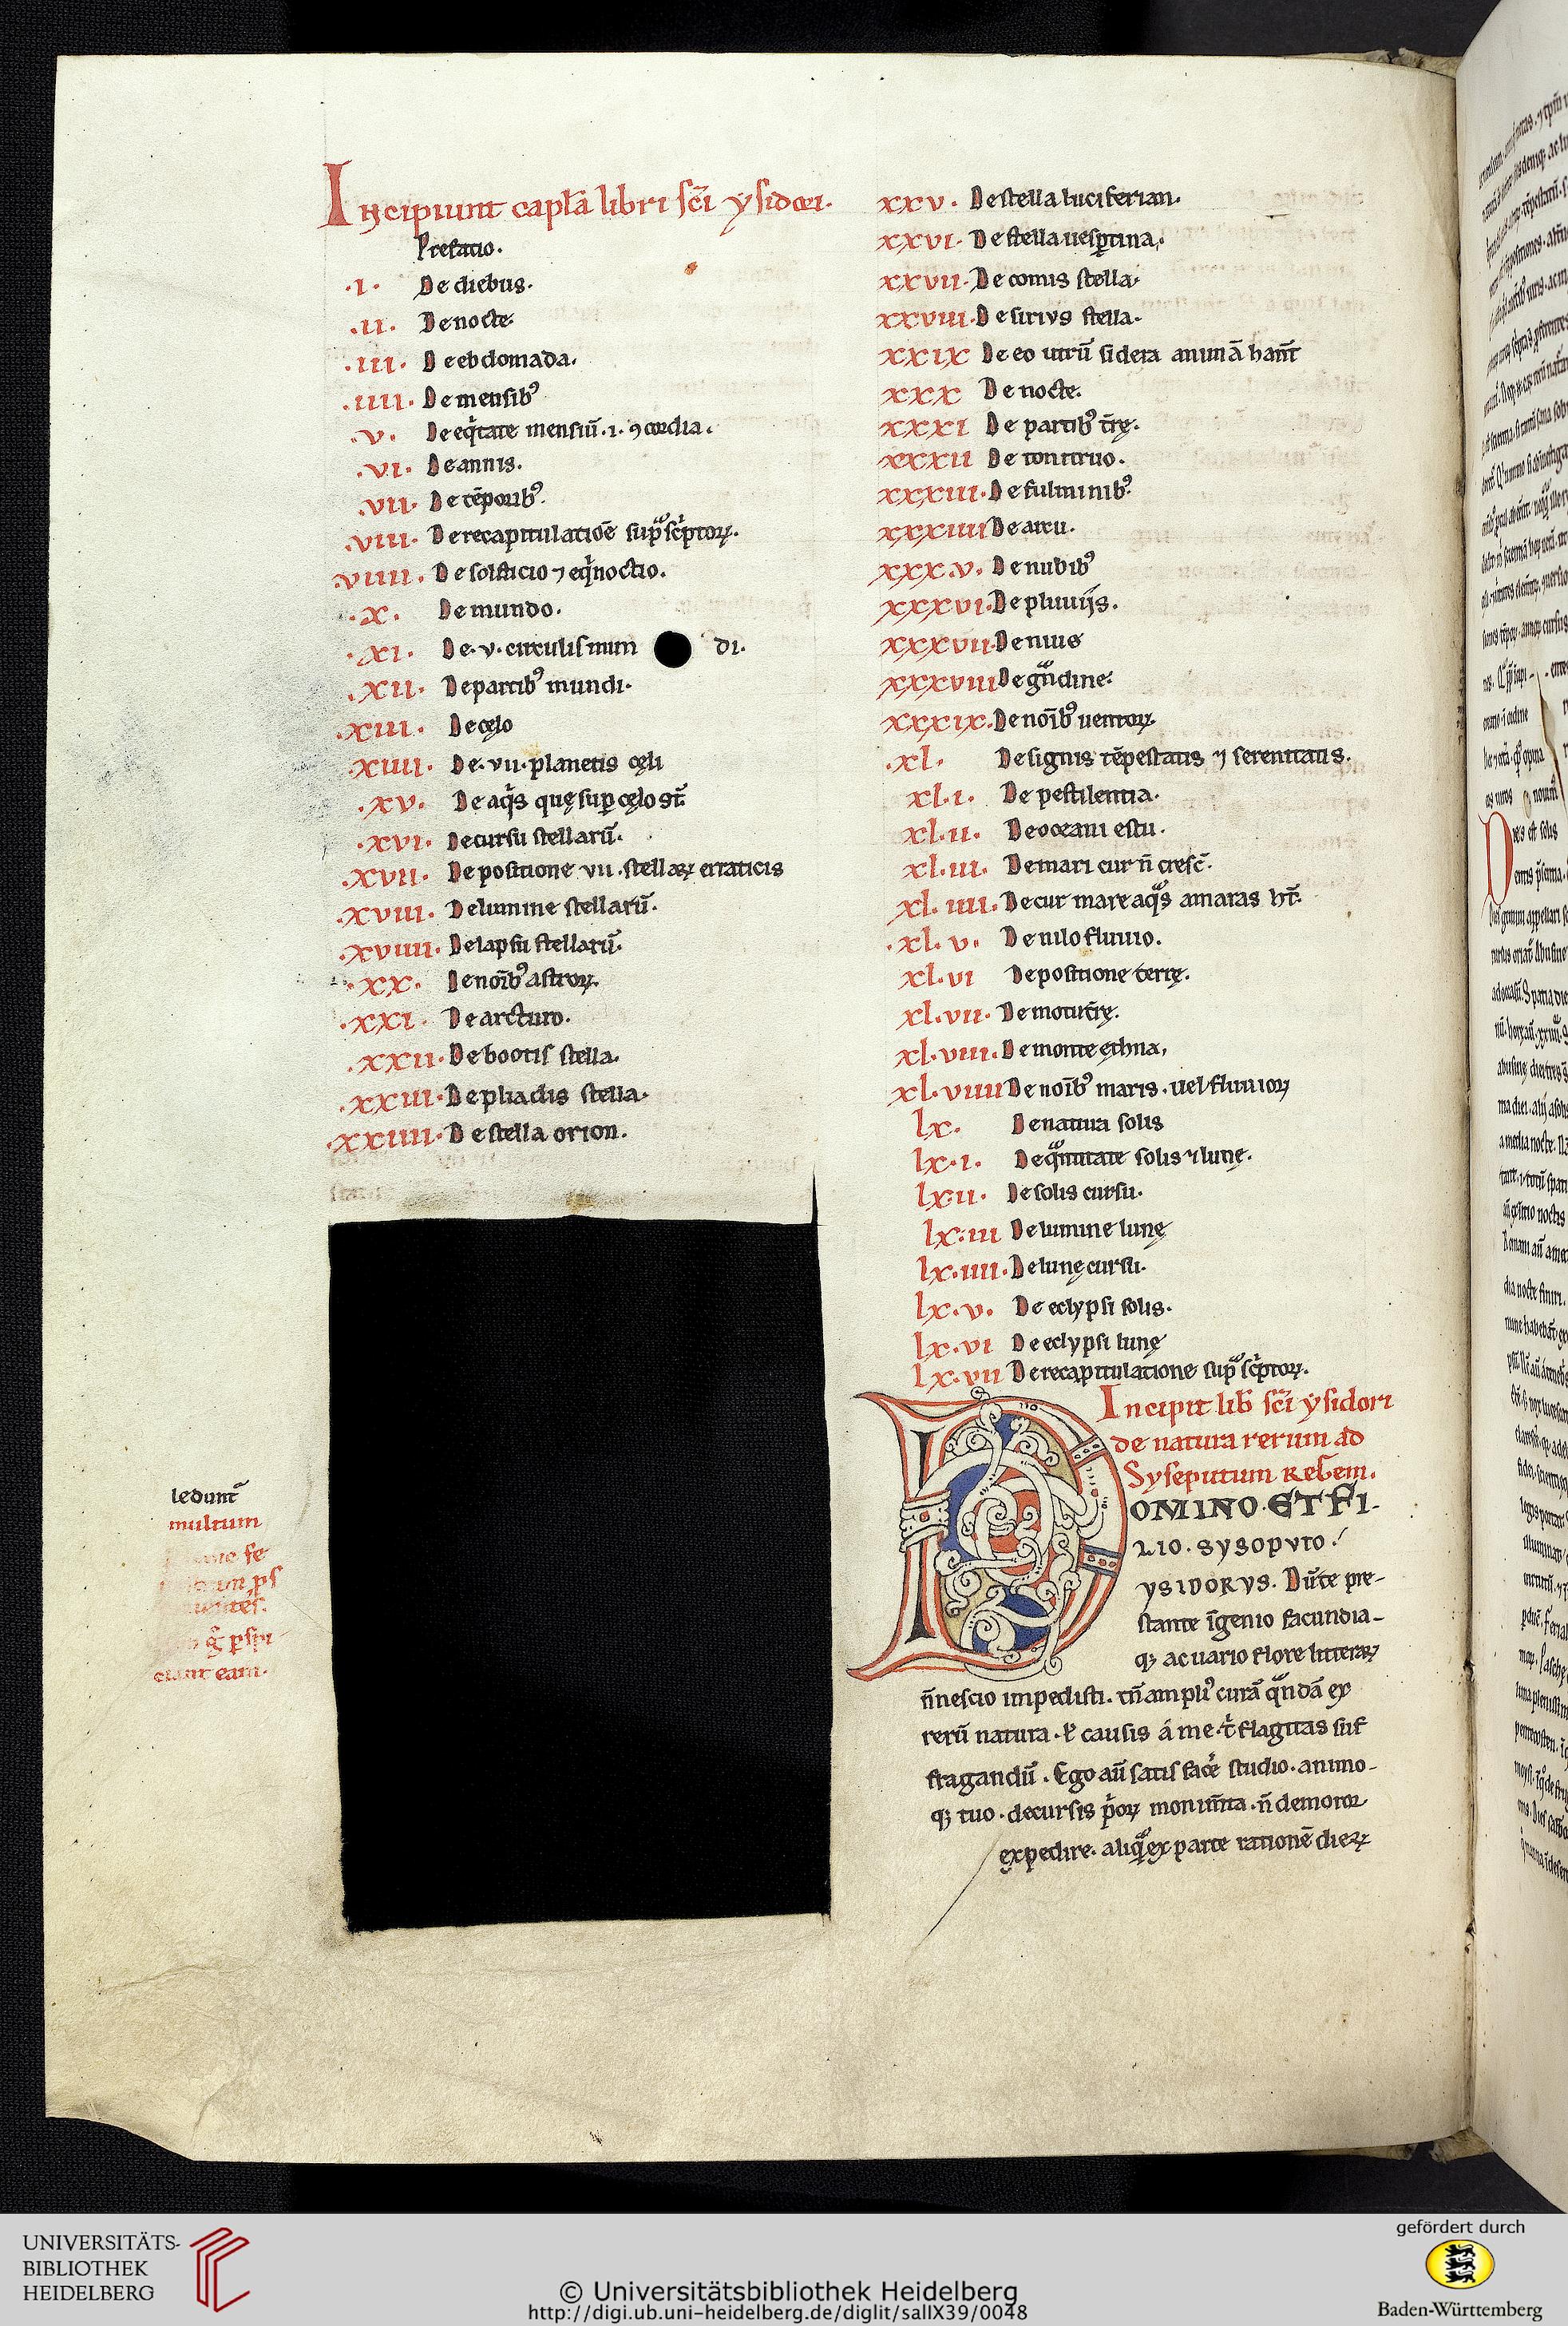 Incipiunt caplā libri sc̄i ysidori.
Prefatio.
.I. De diebus.
.II. De nocte.
.III. De ebdomada.
.IIII. De mensibꝰ
.V. De eq̇tate mensiū .i. ꝯcordia.
.VI. De annis.
.VII. De tēporibꝰ.
.VIII. De recapitulatiōe sup͛sc̍ptoꝝ.
.VIIII. De solsticio ⁊ eq̍noctio.
.X. De mundo.
.XI. De .v. circulis mun di.
.XII. De partibꝰ mundi.
.XIII. De cęlo
.XIIII. De .vii. planetis cęli
.XV. De aq̍s quę suꝑ cęlo st̄.
.XVI. De cursu stellarū.
.XVII. De positione vii. stellaꝝ erraticis
.XVIII. De lumine stellarū.
.XVIIII. De lapsu stellarū.
.XX. De noīb̾ astroꝝ.
.XXI. De arcturo.
.XXII. De bootis stella.
.XXIII. De pliadis stella.
.XXIIII. De stella orion.
ledunt̄
multum
fe
ꝑs
ꝑspi
ciunt eam.
XXV. De stella luciferian.
XXVI. De stella uesꝑtina.
XXVII. De comis stella.
XXVIII. De sirivs stella.
XXIX De eo utrū sidera animā han̄t
XXX De nocte.
XXXI De partibꝰ t̄rę.
XXXII De tonitruo.
XXXIII. De fulminibꝰ.
XXXIIII De arcu.
XXX.V. De nubibꝰ
XXXVI. De pluuiis.
XXXVII. De niuis
XXXVIII De gͣndine.
XXXIX. De noīb̾ uentoꝝ.
.XL. De signis tēpestatis ⁊ serenitatis.
XL.I. De pestilentia.
XL.II. De oceani estu.
XL.III. De mari cur n̄ cresc̄.
XL.IIII. De cur mare aqͣs amaras ht̄.
.XL.V. De nilo fluuio.
XL.VI De positione terrę.
XL.VII. De motu t̄rę.
XL.VIII. De monte ethna,
XL.VIIII De noīb̾ maris. uel fluuioꝝ
LX. De natura solis
LX.I. De qͣntitate solis ⁊ lunę.
LXII. De solis cursu.
LX.III De lumine lunę
LX.IIII. De lunę cursu.
LX.V. De eclypsi solis.
LX.VI De eclypsi lunę
LX.VII De recapitulatione supͣ sc̍ptoꝝ.
Incipit lib̄ sc̄i ysidori
de natura rerum ad
Syseputum regem.
DOMINO ET FI-
LIO. SYSOPVTO.
YSIDORVS. Dūte pre-
stante īgenio facundia-
qꝫ ac uario flore litteraꝝ
n̄ nescio impedisti. tn̄ ampliꝰ curā qͣndā ex
rerū natura. ł causis a me t̍ flagitas suf
fragandū. Ego aū satis facē studio. animo-
qꝫ tuo. decursis p̍oꝝ monum̄ta. n̄ demoror
expedire. aliqͣ ex parte rationē dieꝝ
UNIVERSITÄTS-
BIBLIOTHEK
HEIDELBERG
© Universitätsbibliothek Heidelberg
http://digi.ub.uni-heidelberg.de/diglit/salIX39/0048
gefördert durch
Baden-Württemberg